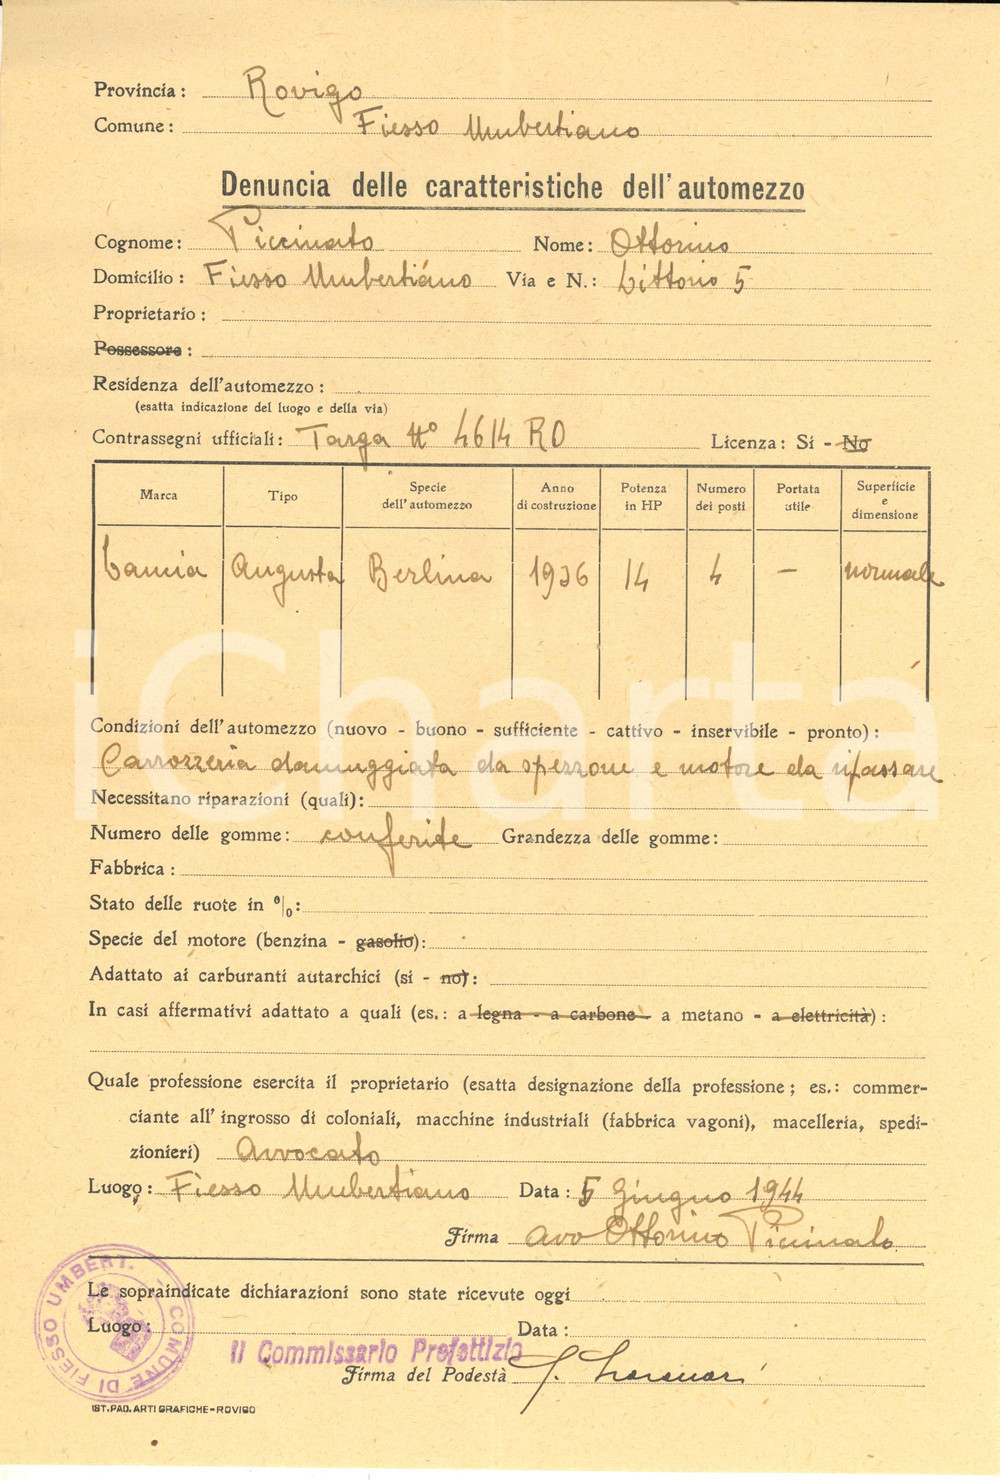 Provincia: Rovigo
Comune: Fiesso Umbertiano
Denuncia delle caratteristiche dell'automezzo
Cognome: Piccinato Nome: Ottorino
Domicilio: Fiesso Umbertiano Via e N.: Littorio 5
Proprietario:
Possessore:
Residenza dell'automezzo:
(esatta indicazione del luogo e della via)
Contrassegni ufficiali: Targa N° 4614 RO Licenza: Si - No
Marca Tipo Specie dell'automezzo Anno di costruzione Potenza in HP Numero dei posti Portata utile Superficie e dimensione
Lancia Augusta Berlina 1936 14 4 — normale
iCharta
Condizioni dell'automezzo (nuovo - buono - sufficiente - cattivo - inservibile - pronto):
Carrozzeria danneggiata da spezzone e motore da ripassare
Necessitano riparazioni (quali):
Numero delle gomme: conferite Grandezza delle gomme:
Fabbrica:
Stato delle ruote in %:
Specie del motore (benzina - gasolio):
Adattato ai carburanti autarchici (si - no):
In casi affermativi adattato a quali (es.: a legna - a carbone - a metano - a elettricità):
Quale professione esercita il proprietario (esatta designazione della professione; es.: commer-
ciante all'ingrosso di coloniali, macchine industriali (fabbrica vagoni), macelleria, spedi-
zionieri) Avvocato
Luogo: Fiesso Umbertiano Data: 5 Giugno 1944
Firma Avv Ottorino Piccinato
Le sopraindicate dichiarazioni sono state ricevute oggi
Luogo: Data:
Il Commissario Prefettizio
Firma del Podestà
COMUNE DI FIESSO UMBERT.
IST. PAD. ARTI GRAFICHE - ROVIGO